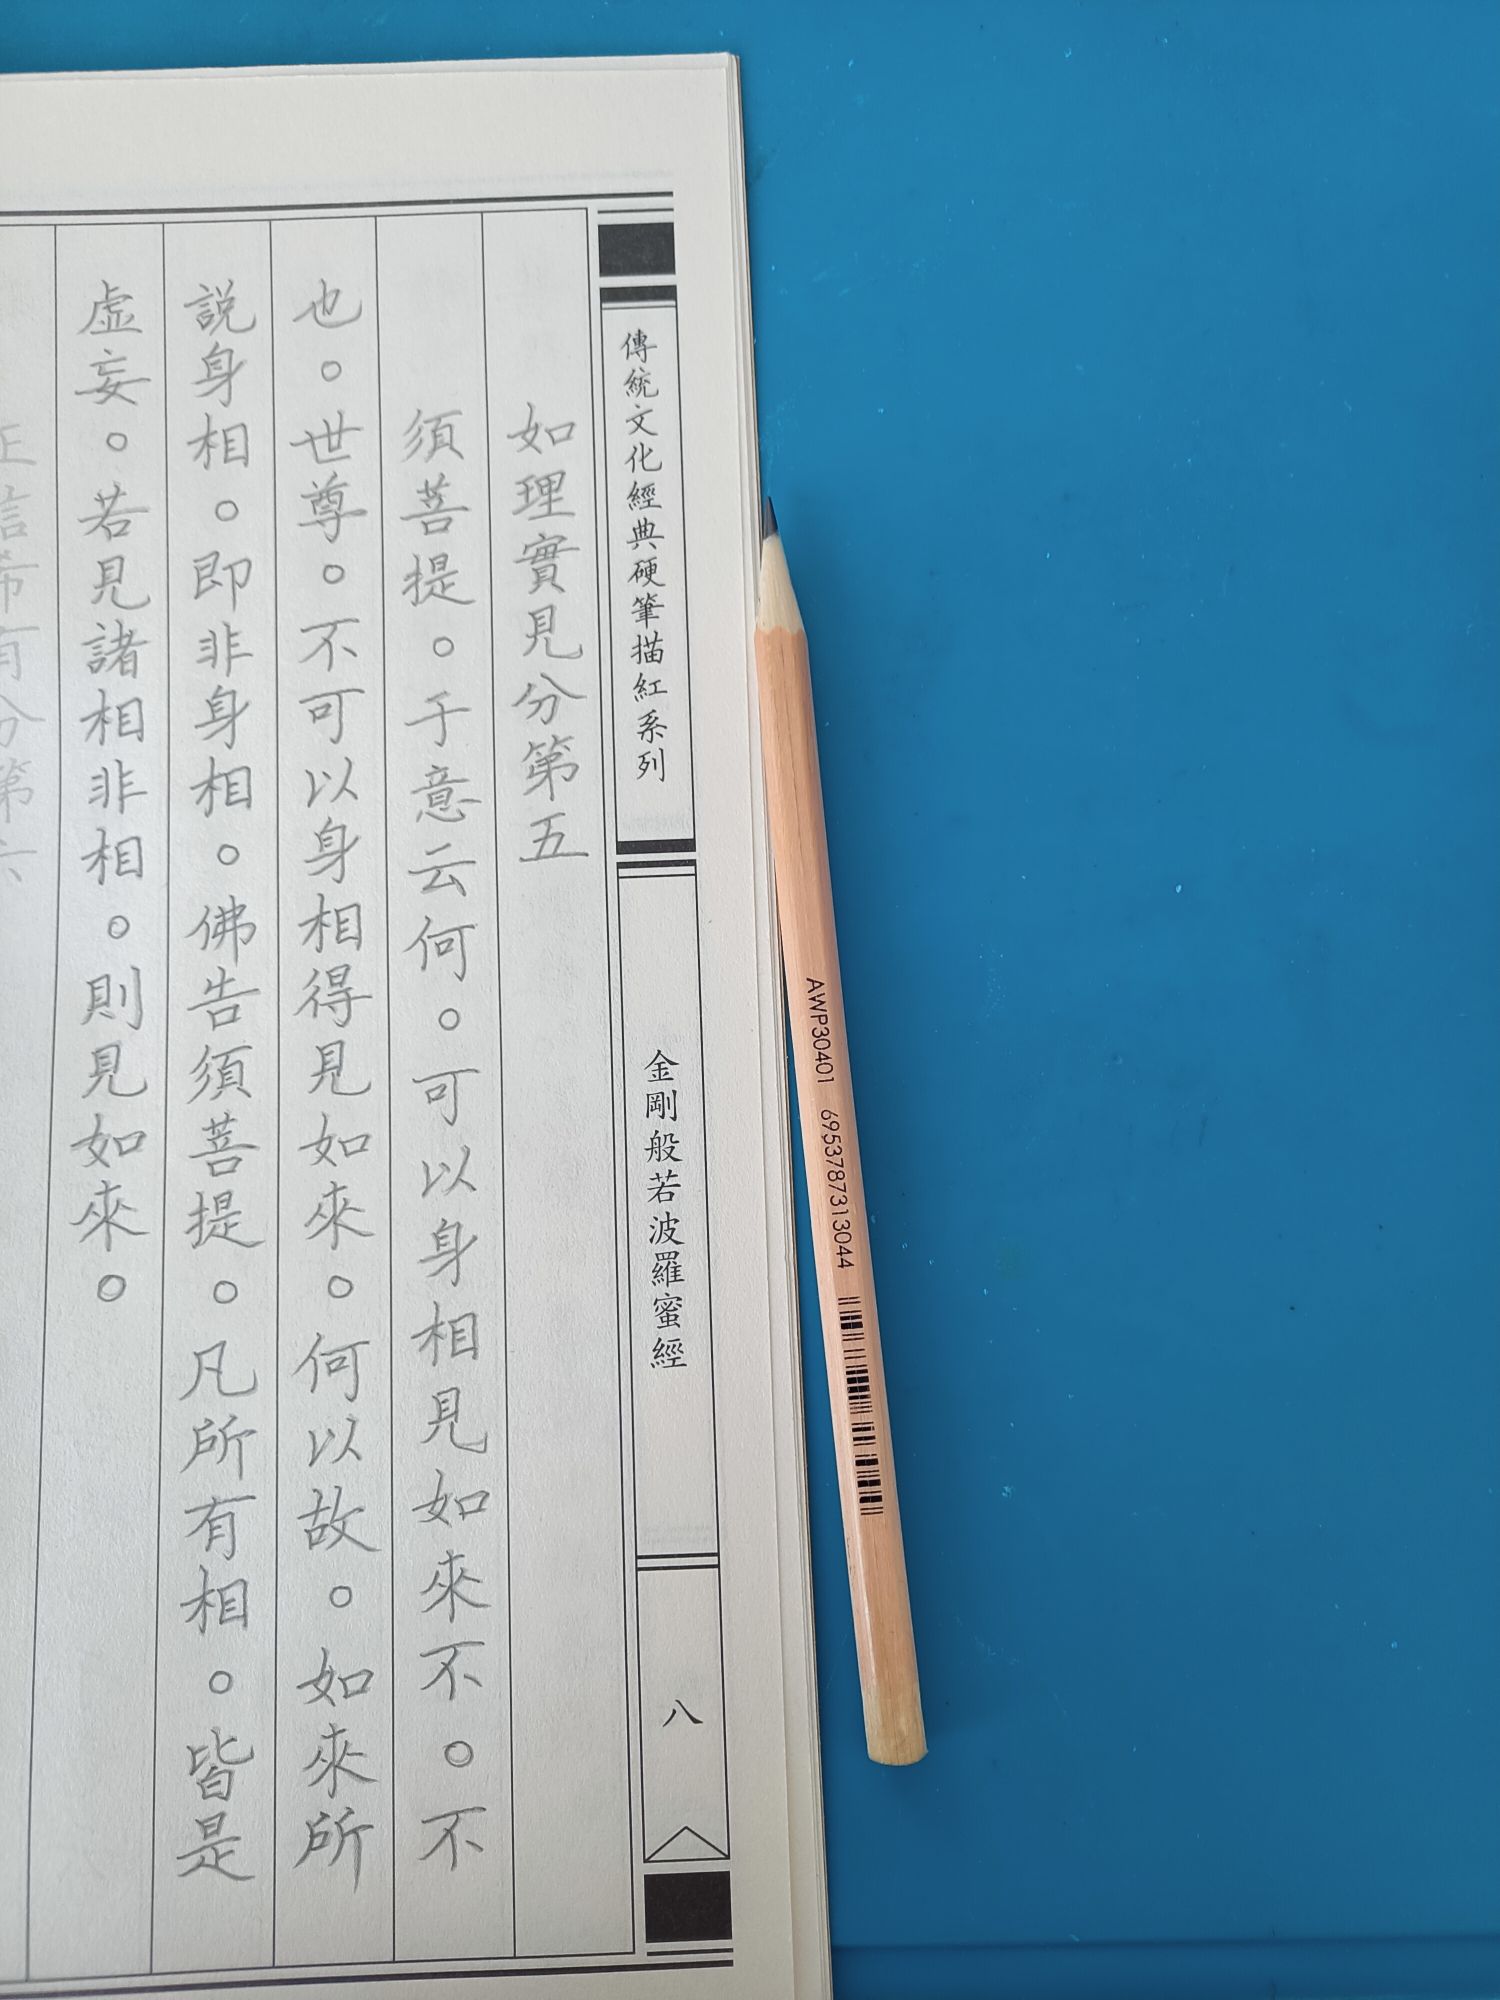 傳統文化經典硬筆描紅系列
金剛般若波羅蜜經
八
如理實見分第五
須菩提。于意云何。可以身相見如來不。不
也。世尊。不可以身相得見如來。何以故。如來所
説身相。即非身相。佛告須菩提。凡所有相。皆是
虛妄。若見諸相非相。則見如來。
正信希有分第六
AWP30401 6953787313044